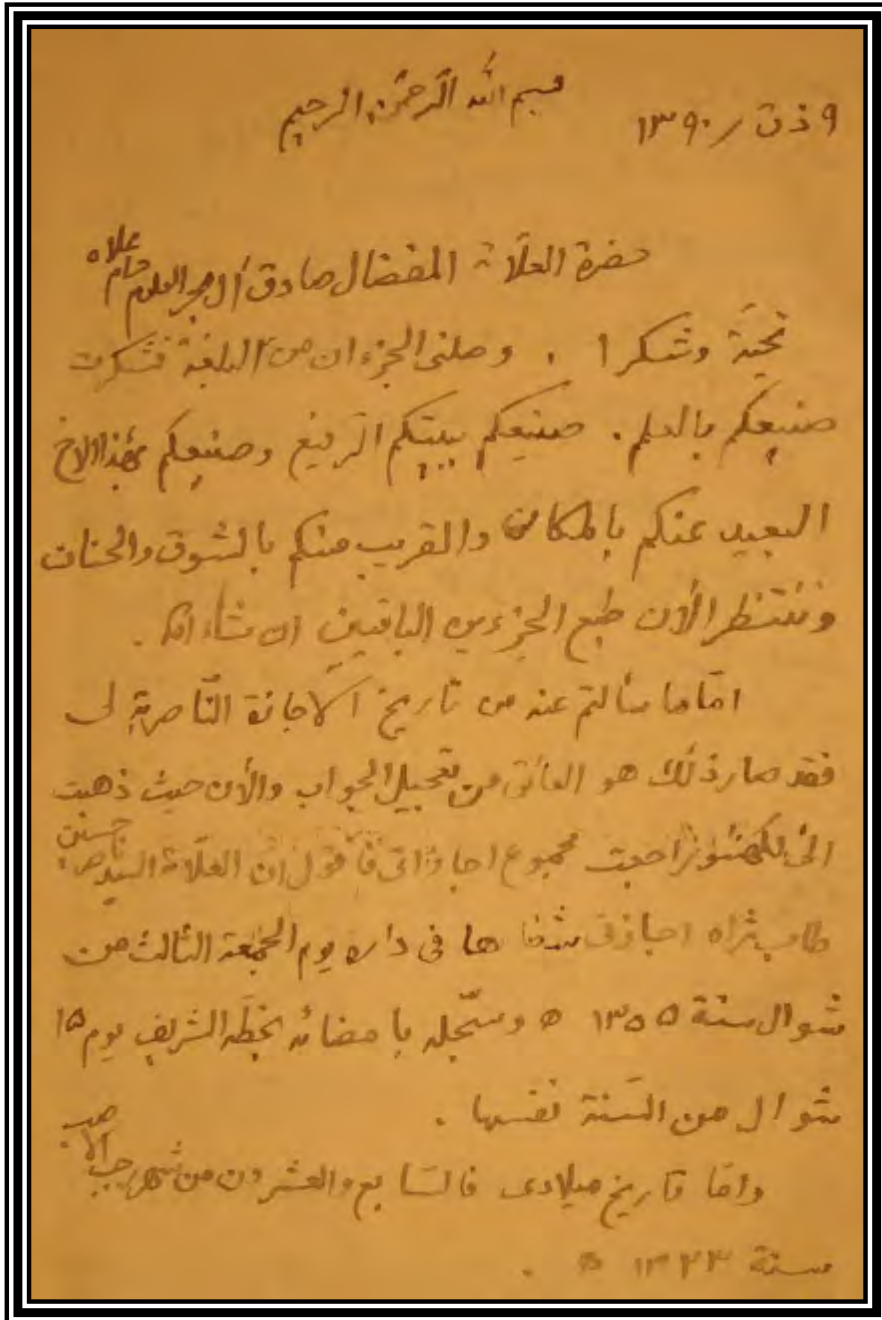 بسم الله الرحمن الرحيم
٩ ذق / ١٣٩٠
حضرة العلامة المفضال صادق آل بحر العلوم دام علاه
تحية وشكرا . وصلنى الجزءان من البلغة فشكرت
صنيعكم بالعلم . صنيعكم ببيتكم الرفيع وصنيعكم بهذا الاخ
البعيد عنكم بالمكان والقريب منكم بالشوق والحنان
وننتظر الأن طبع الجزءين الباقيين ان شاء الله .
امّا ما سألتم عنه من تاريخ الاجازة النّاصرية لى
فقد صار ذلك هو العائق من تعجيل الجواب والأن حيث ذهبت
الى لكهنؤ راجعت مجموع اجازاتى فأقول انّ العلامة السيد ناصر حسين
طاب ثراه اجازنى شفاها فى داره يوم الجمعة الثالث من
شوال سنة ١٣٥٥ ه وسجّله بامضائه بخطّه الشريف يوم ١٥
شوال من السّنة نفسها .
وامّا تاريخ ميلادى فالسّابع والعشرون من شهر رجب الاصب
سنة ١٣٢٣ ه .